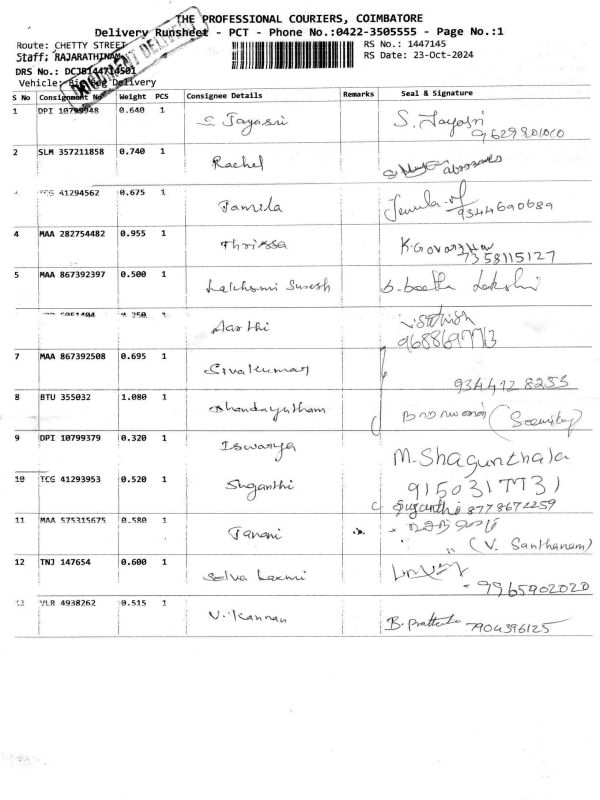 THE PROFESSIONAL COURIERS, COIMBATORE
Delivery Runsheet - PCT - Phone No.:0422-3505555 - Page No.:1
Route: CHETTY STREET RS No.: 1447145
Staff: RAJARATHINAM RS Date: 23-Oct-2024
DRS No.: DCJB144714501
Vehicle: Big Bag Delivery
DOCUMENT DELIVERY
S No Consignment No Weight PCS Consignee Details Remarks Seal & Signature
1 DPI 10799948 0.640 1 S. Jayasri S. Jayasri
9629801010
2 SLM 357211858 0.740 1 Rachel
TCG 41294562 0.675 1 Jamila
9344690689
4 MAA 282754482 0.955 1 Thrissa
7358115127
5 MAA 867392397 0.500 1 Lakhsmi Suresh
1 Aarthi
7 MAA 867392508 0.695 1 Sivakumar
9344128253
8 BTU 355032 1.080 1 (Security)
9 DPI 10799379 0.320 1 Iswarya M. Shagunthala
10 TCG 41293953 0.520 1 Suganthi 9150317731
Suganthi 8778672259
11 MAA 575315675 0.580 1 Janani
(V. Santhanam)
12 TNJ 147654 0.600 1 Selva Laxmi
9965902020
13 VLR 4938262 0.515 1 V. Kannan 7904396125